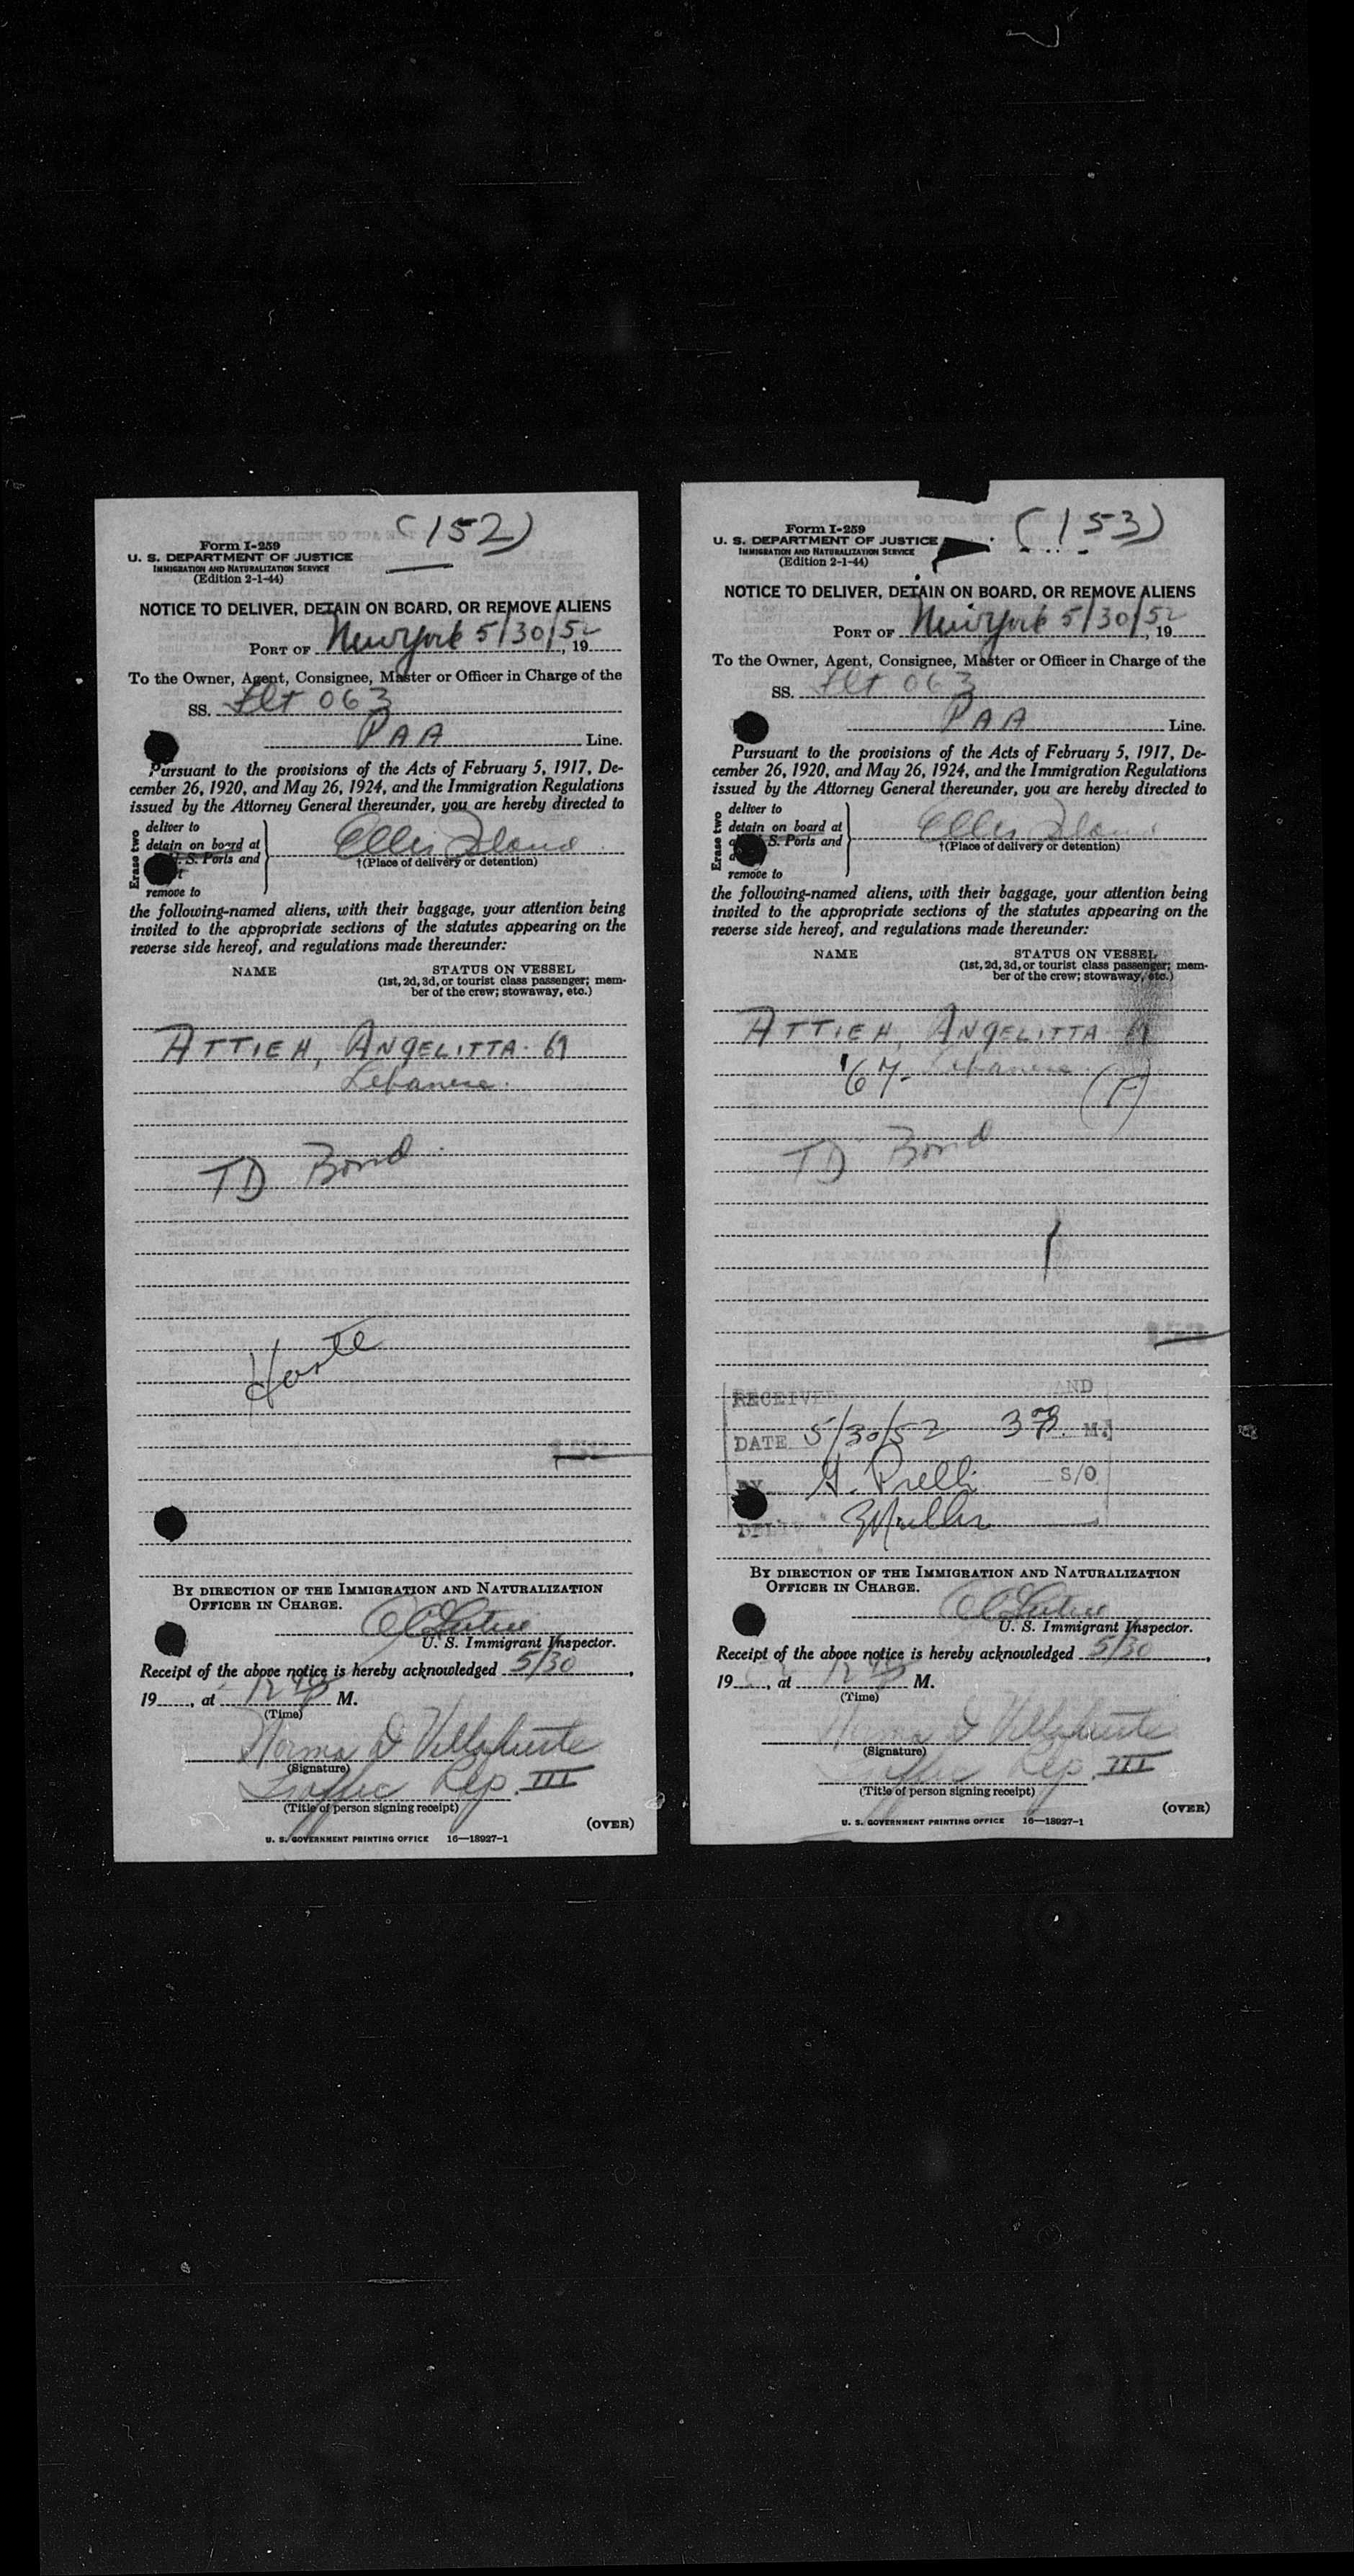 (152)
Form I-259
U. S. DEPARTMENT OF JUSTICE
IMMIGRATION AND NATURALIZATION SERVICE
(Edition 2-1-44)
NOTICE TO DELIVER, DETAIN ON BOARD, OR REMOVE ALIENS
PORT OF New York 5/30/52, 19
To the Owner, Agent, Consignee, Master or Officer in Charge of the
SS. Flt 063
PAA Line.
Pursuant to the provisions of the Acts of February 5, 1917, De-
cember 26, 1920, and May 26, 1924, and the Immigration Regulations
issued by the Attorney General thereunder, you are hereby directed to
Erase two
deliver to
detain on board at
U. S. Ports and
remove to
Ellis Island
†(Place of delivery or detention)
the following-named aliens, with their baggage, your attention being
invited to the appropriate sections of the statutes appearing on the
reverse side hereof, and regulations made thereunder:
NAME
STATUS ON VESSEL
(1st, 2d, 3d, or tourist class passenger; mem-
ber of the crew; stowaway, etc.)
ATTIEH, ANGELITTA.
Lebanese.
TD Bond
BY DIRECTION OF THE IMMIGRATION AND NATURALIZATION
OFFICER IN CHARGE.
U. S. Immigrant Inspector.
Receipt of the above notice is hereby acknowledged 5/30,
19, at M.
(Time)
Norma D
(Signature)
Traffic Rep. III
(Title of person signing receipt)
(OVER)
U. S. GOVERNMENT PRINTING OFFICE 16—18927-1
(153)
Form I-259
U. S. DEPARTMENT OF JUSTICE
IMMIGRATION AND NATURALIZATION SERVICE
(Edition 2-1-44)
NOTICE TO DELIVER, DETAIN ON BOARD, OR REMOVE ALIENS
PORT OF New York 5/30/52, 19
To the Owner, Agent, Consignee, Master or Officer in Charge of the
SS. Flt 063
PAA Line.
Pursuant to the provisions of the Acts of February 5, 1917, De-
cember 26, 1920, and May 26, 1924, and the Immigration Regulations
issued by the Attorney General thereunder, you are hereby directed to
Erase two
deliver to
detain on board at
S. Ports and
remove to
Ellis Island
†(Place of delivery or detention)
the following-named aliens, with their baggage, your attention being
invited to the appropriate sections of the statutes appearing on the
reverse side hereof, and regulations made thereunder:
NAME
STATUS ON VESSEL
(1st, 2d, 3d, or tourist class passenger; mem-
ber of the crew; stowaway, etc.)
ATTIEH, ANGELITTA
67- Lebanese.
TD Bond
RECEIVED
DATE 5/30/52 M.
S/O
BY DIRECTION OF THE IMMIGRATION AND NATURALIZATION
OFFICER IN CHARGE.
U. S. Immigrant Inspector.
Receipt of the above notice is hereby acknowledged 5/30,
19, at M.
(Time)
Norma D
(Signature)
Traffic Rep. III
(Title of person signing receipt)
(OVER)
U. S. GOVERNMENT PRINTING OFFICE 16—18927-1